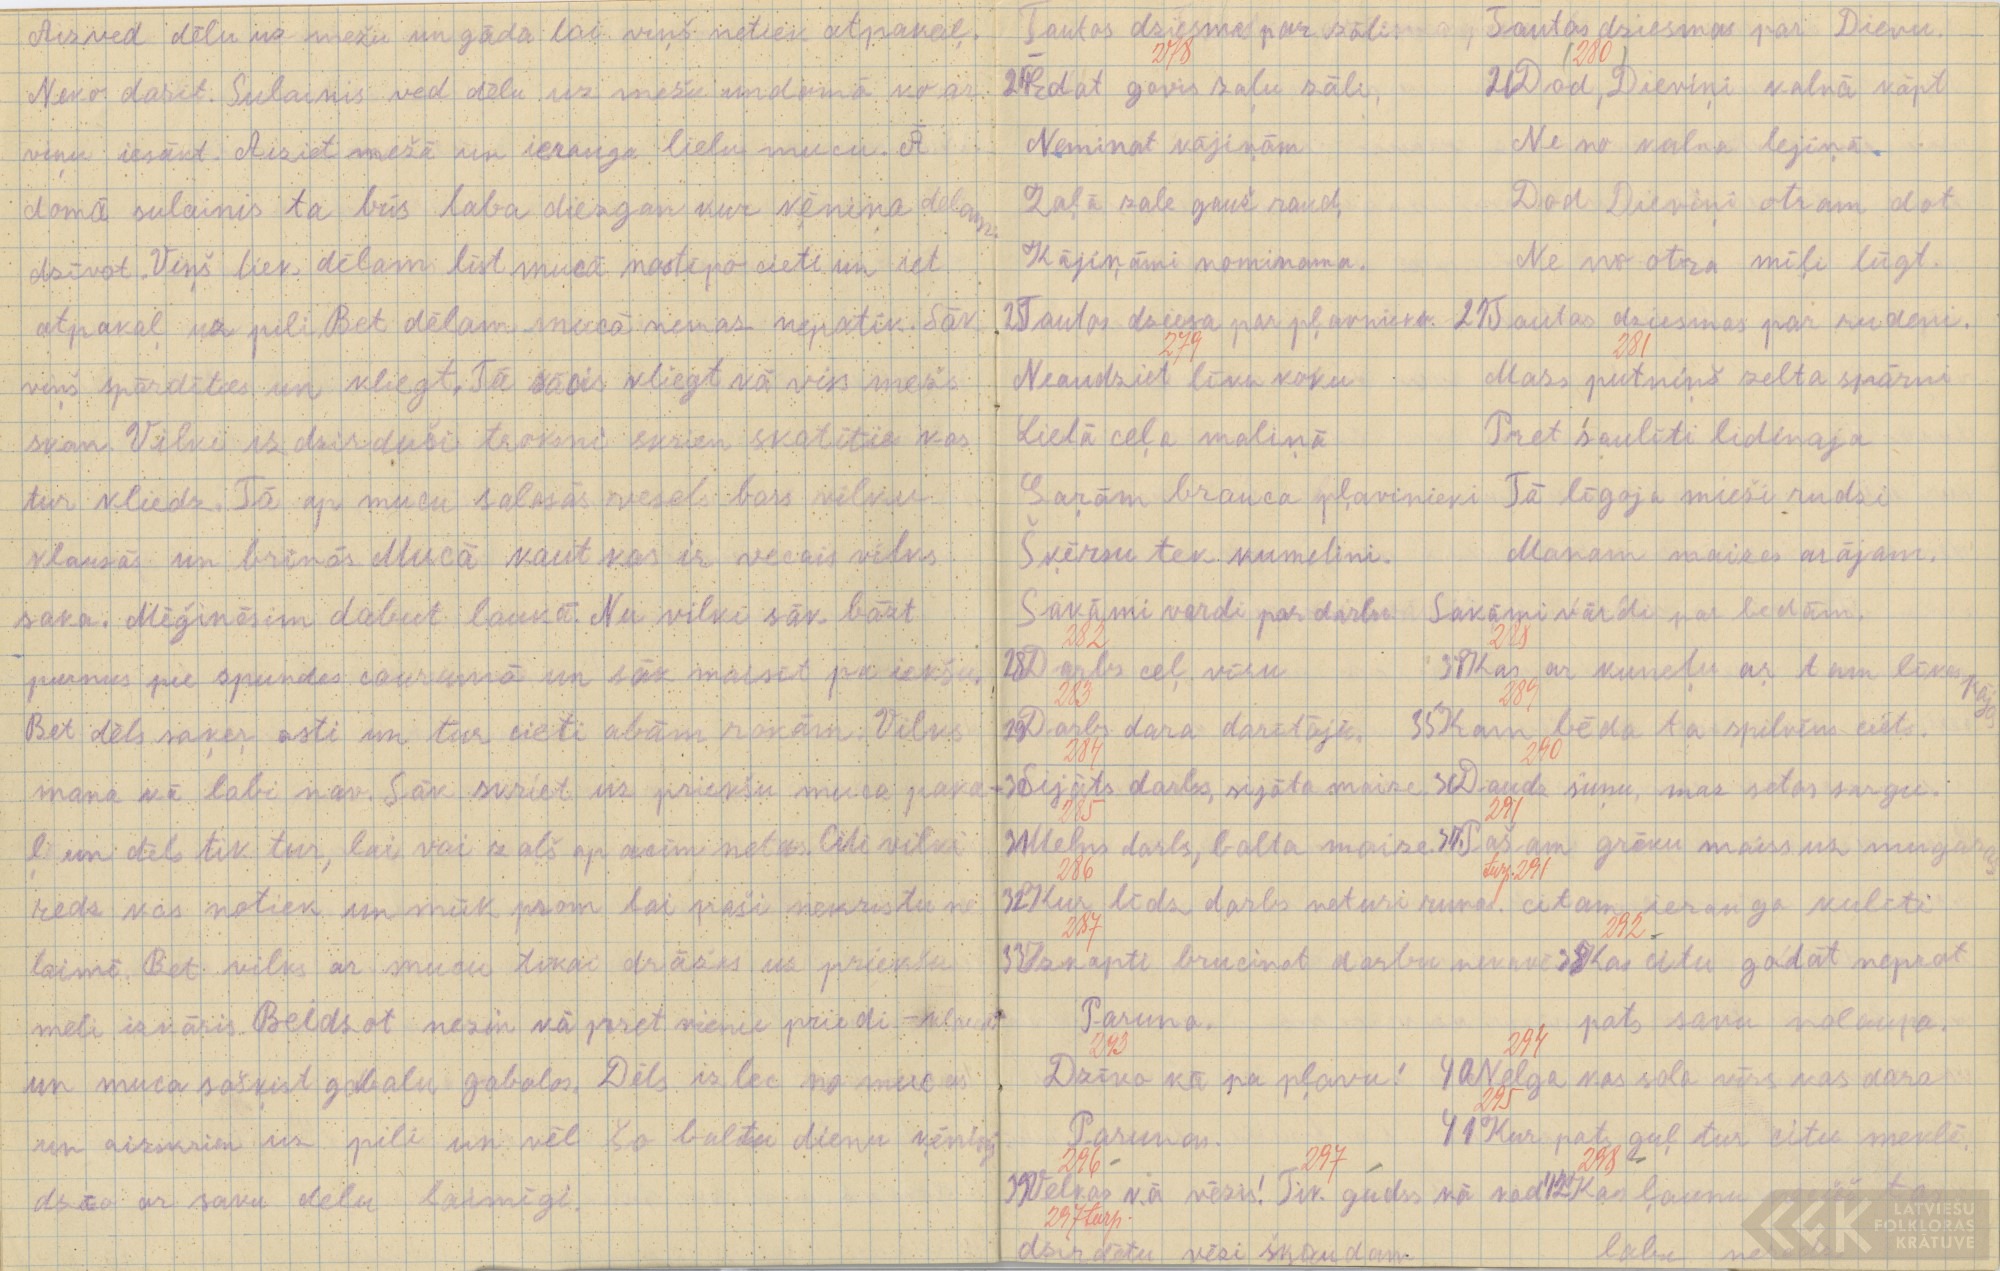 Aizved dēlu uz mežu un gāda lai viņš netiek atpakaļ.
Neko darit. Sulainis ved dēlu uz mežu un domā ko ar
viņu iesākt. Aiziet mežā un ierauga lielu mucu. Ā
domā sulainis ta būs laba diezgan kur ķēniņa dēlam
dzīvot. Viņš liek dēlam līst mucā nostīpo cieti un iet
atpakaļ uz pili. Bet dēlam mucā nemaz nepatīk. Sāk
viņš spārdīties un kliegt. Tā sācis kliegt kā viss mežs
skan. Vilki izdzirduši troksni skrien skatītie kas
tur kliedz. Tā ap mucu salasās vesels bars vilku
klausās un brīnās Mucā kaut kas ir vecais vilks
saka. Mēģināsim dabut laukā. Nu vilki sāk bāzt
purnus pie spundes caurumā un sāk maisīt pa iekšu.
Bet dēls saķeŗ asti un tur cieti abām rokām. Vilks
mana kā labi nav. Sāk skriet uz priekšu muca paka-
ļ un dēls tik tur, lai vai zaļš ap acīm netas. Citi vilki
redz kas notiek un mūk prom lai paši nekristu ne
laimē. Bet vilks ar mucu tikai drāžas uz priekšu
mēli izkāris. Beidzot nezin kā pret vienu priedi
un muca sašķīst gabalu gabalos. Dēls izlec no mucas
un aizskrien uz pili un vēl šo baltu dienu ķēniņ
dzīvo ar savu dēlu laimīgi.
Tautas dziesmas par zāli
278
Ēdat govis zaļu zāli,
Neminat kājiņām
Zaļā zale gauž raud,
Kājiņāmi nominama.
25 Tautas dziesa par pļavnieki.
279
Neaudziet līku koku
Lielā ceļa maliņā
Gaŗām brauca pļavinieki
Šķērsu tek kumelini.
Sakāmi vardi par darbu
282
28 Darbs ceļ vīru
283
29 Darbs dara darītāju.
284
30 Sijāts darbs, sijāta maize
285
31 Melns darbs, balta maize.
286
32 Kur līdz darbs neturi runa.
287
33 Izkapti brucinot darbu nekavē
Paruna.
293
Dzīvo kā pa pļavu!
Parunas.
296
39 Velkas kā vēzis!
297
Tik gudrs kā kad
297 turp.
dzirdētu vēzi šķaudam
Tautas dziesmas par Dievu.
(280)
26 Dod, Dieviņi kalnā kāpt
Ne no kalna lejiņā.
Dod Dieviņi otram dot
Ne no otra mīļi lūgt.
27 Tautas dziesmas par rudeni.
281
Mazs putniņš zelta spārni
Pret saulīti lidinaja
Tā līgoja mieži rudzi
Manam maizes arājam.
Sakāmi vārdi par bēdām.
288
34 Kas ar kuneļu aŗ tam līkas kājas
289
35 Kam bēda ta spilvēns ciets.
290
36 Daudz suņu, maz sētas sargu.
291
37 Pašam grēku maiss uz muguras
turp. 291
citam ierauga kulīti
292
38 Kas citu gādāt neprot
pats savu nolaupa.
294
40 Nelga kas sola vīrs kas dara
295
41 Kur pats guļ tur citu meklē.
298
42 Kas ļaunu
labu
LATVIEŠU
FOLKLORAS
KRĀTUVE